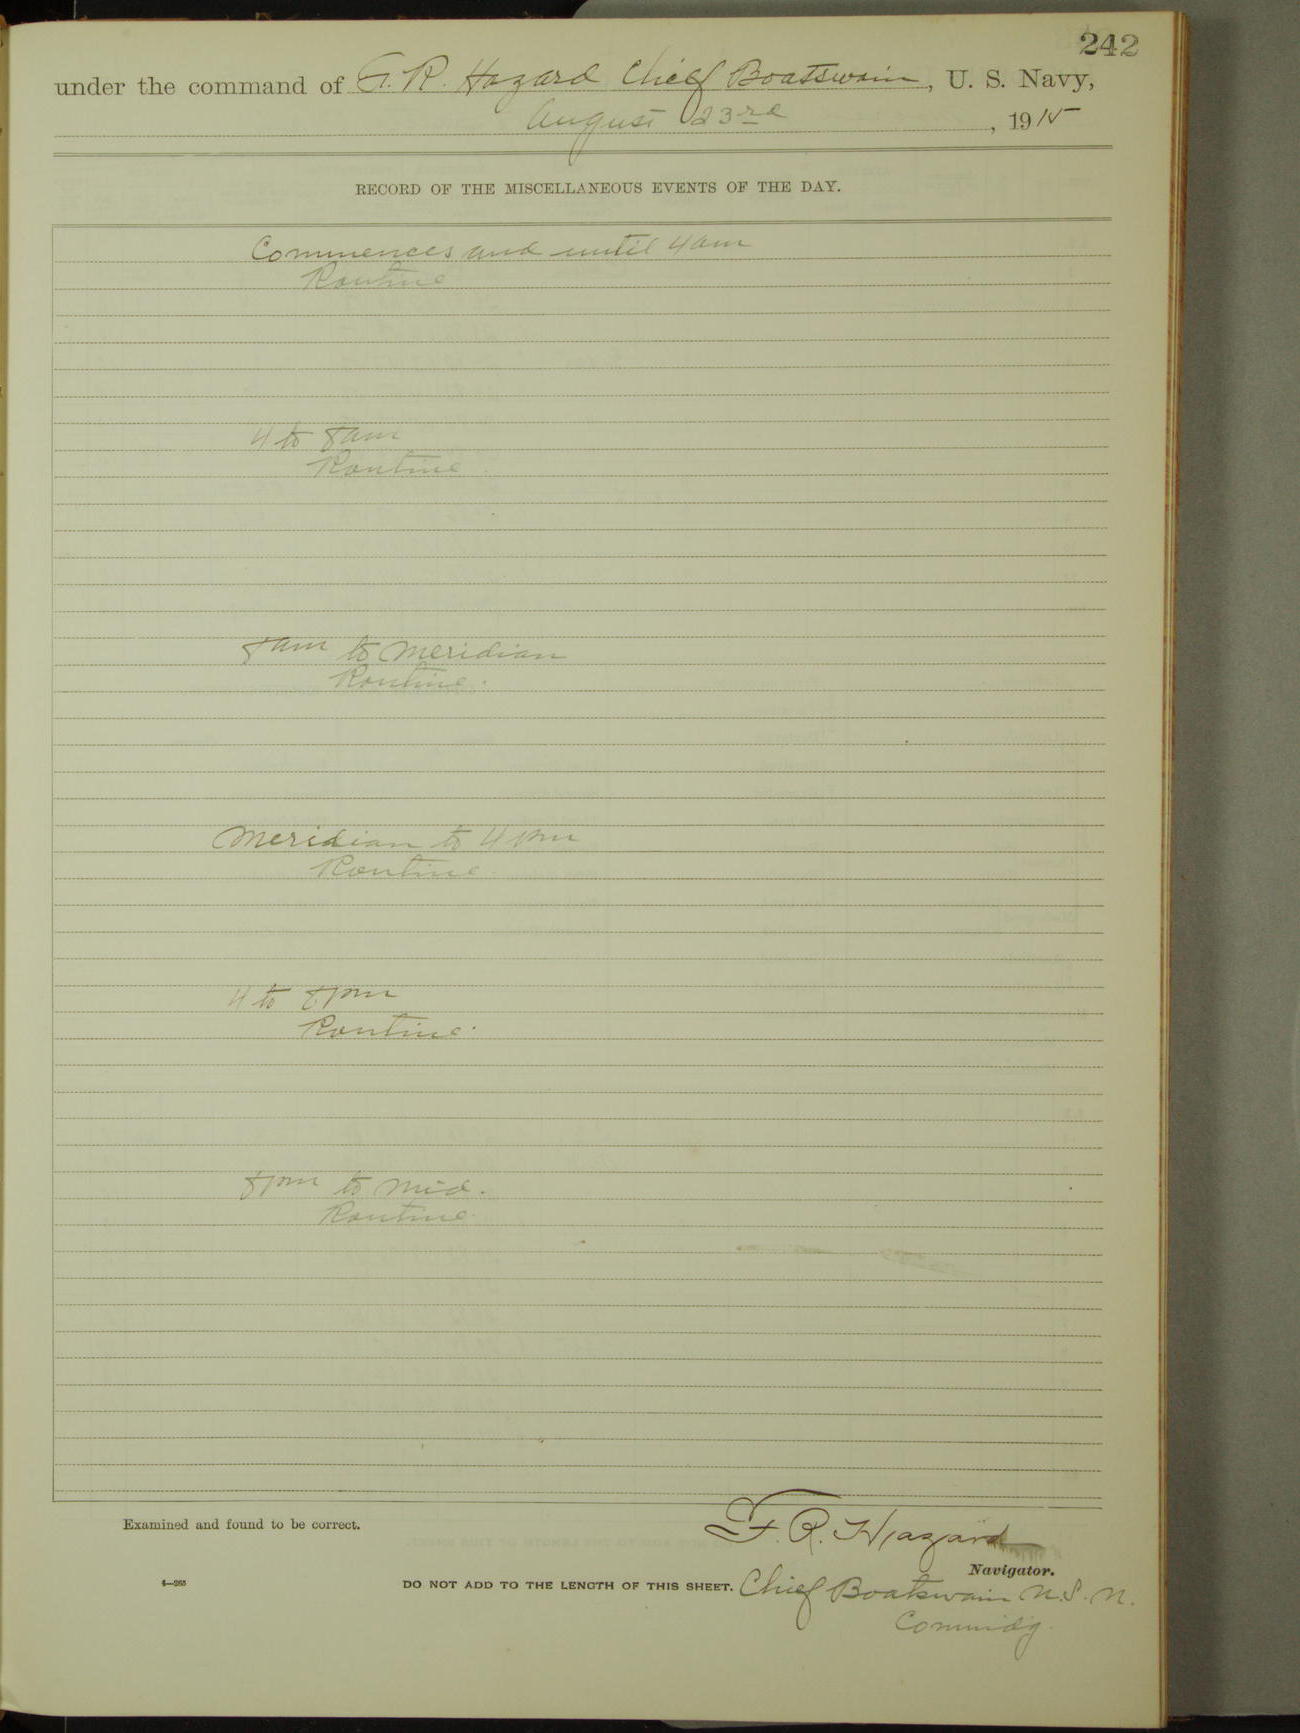 242
under the command of F. R. Hazard Chief Boatswain, U. S. Navy,
August 23rd, 1915
RECORD OF THE MISCELLANEOUS EVENTS OF THE DAY.
Commences and until 4 am
Routine
4 to 8 am
Routine
8 am to Meridian
Routine.
Meridian to 4 pm
Routine
4 to 8 pm
Routine.
8 pm to Mid.
Routine
Examined and found to be correct.
F. R. Hazard
Navigator.
4—265
DO NOT ADD TO THE LENGTH OF THIS SHEET.
Chief Boatswain U.S.N.
Commdg.